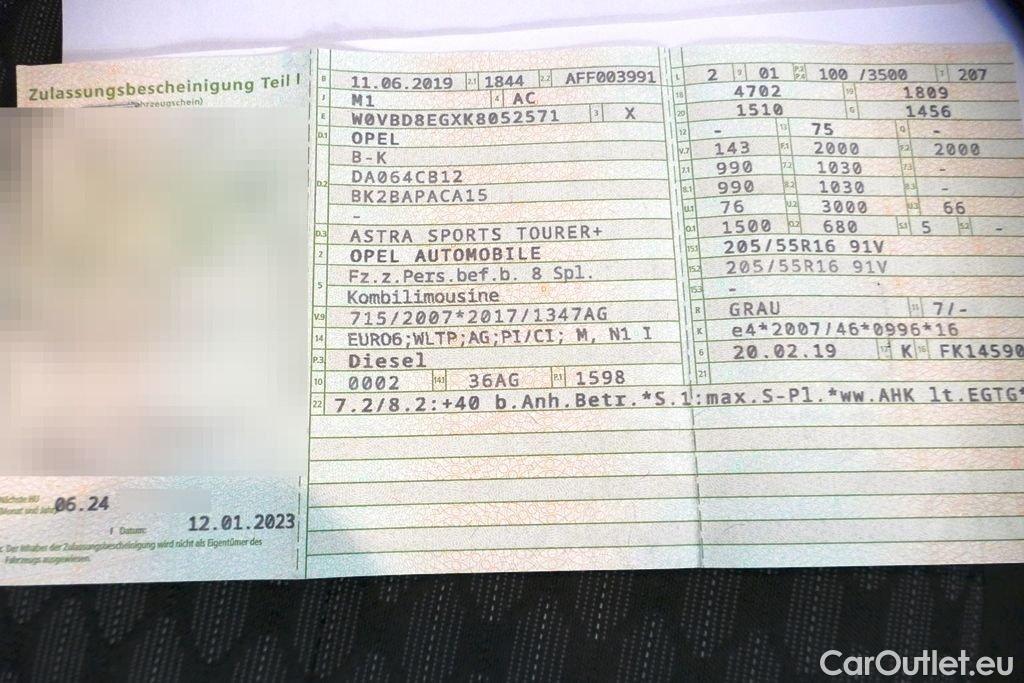 Zulassungsbescheinigung Teil I
B 11.06.2019 2.1 1844 2.2 AFF003991
J M1 4 AC
E W0VBD8EGXK8052571 3 X
D.1 OPEL
B-K
D.2 DA064CB12
BK2BAPACA15
-
D.3 ASTRA SPORTS TOURER+
2 OPEL AUTOMOBILE
5 Fz.z.Pers.bef.b. 8 Spl.
Kombilimousine
V.9 715/2007*2017/1347AG
14 EURO6;WLTP;AG;PI/CI; M, N1 I
P.3 Diesel
10 0002 14.1 36AG P.1 1598
22 7.2/8.2:+40 b.Anh.Betr.*S.1:max.S-Pl.*ww.AHK lt.EGTG*
L 2 9 01 P.2 P.4 100 /3500 T 207
18 4702 19 1809
20 1510 G 1456
12 - 13 75 Q -
V.7 143 F.1 2000 F.2 2000
7.1 990 7.2 1030 7.3 -
8.1 990 8.2 1030 8.3 -
U.1 76 U.2 3000 U.3 66
O.1 1500 O.2 680 S.1 5 S.2 -
15.1 205/55R16 91V
15.2 205/55R16 91V
15.3 -
R GRAU 11 7/-
K e4*2007/46*0996*16
6 20.02.19 17 K 16 FK14590
21
Nächste HU
(Monat und Jahr) 06.24
Datum: 12.01.2023
Der Inhaber der Zulassungsbescheinigung wird nicht als Eigentümer des
Fahrzeugs ausgewiesen.
CarOutlet.eu